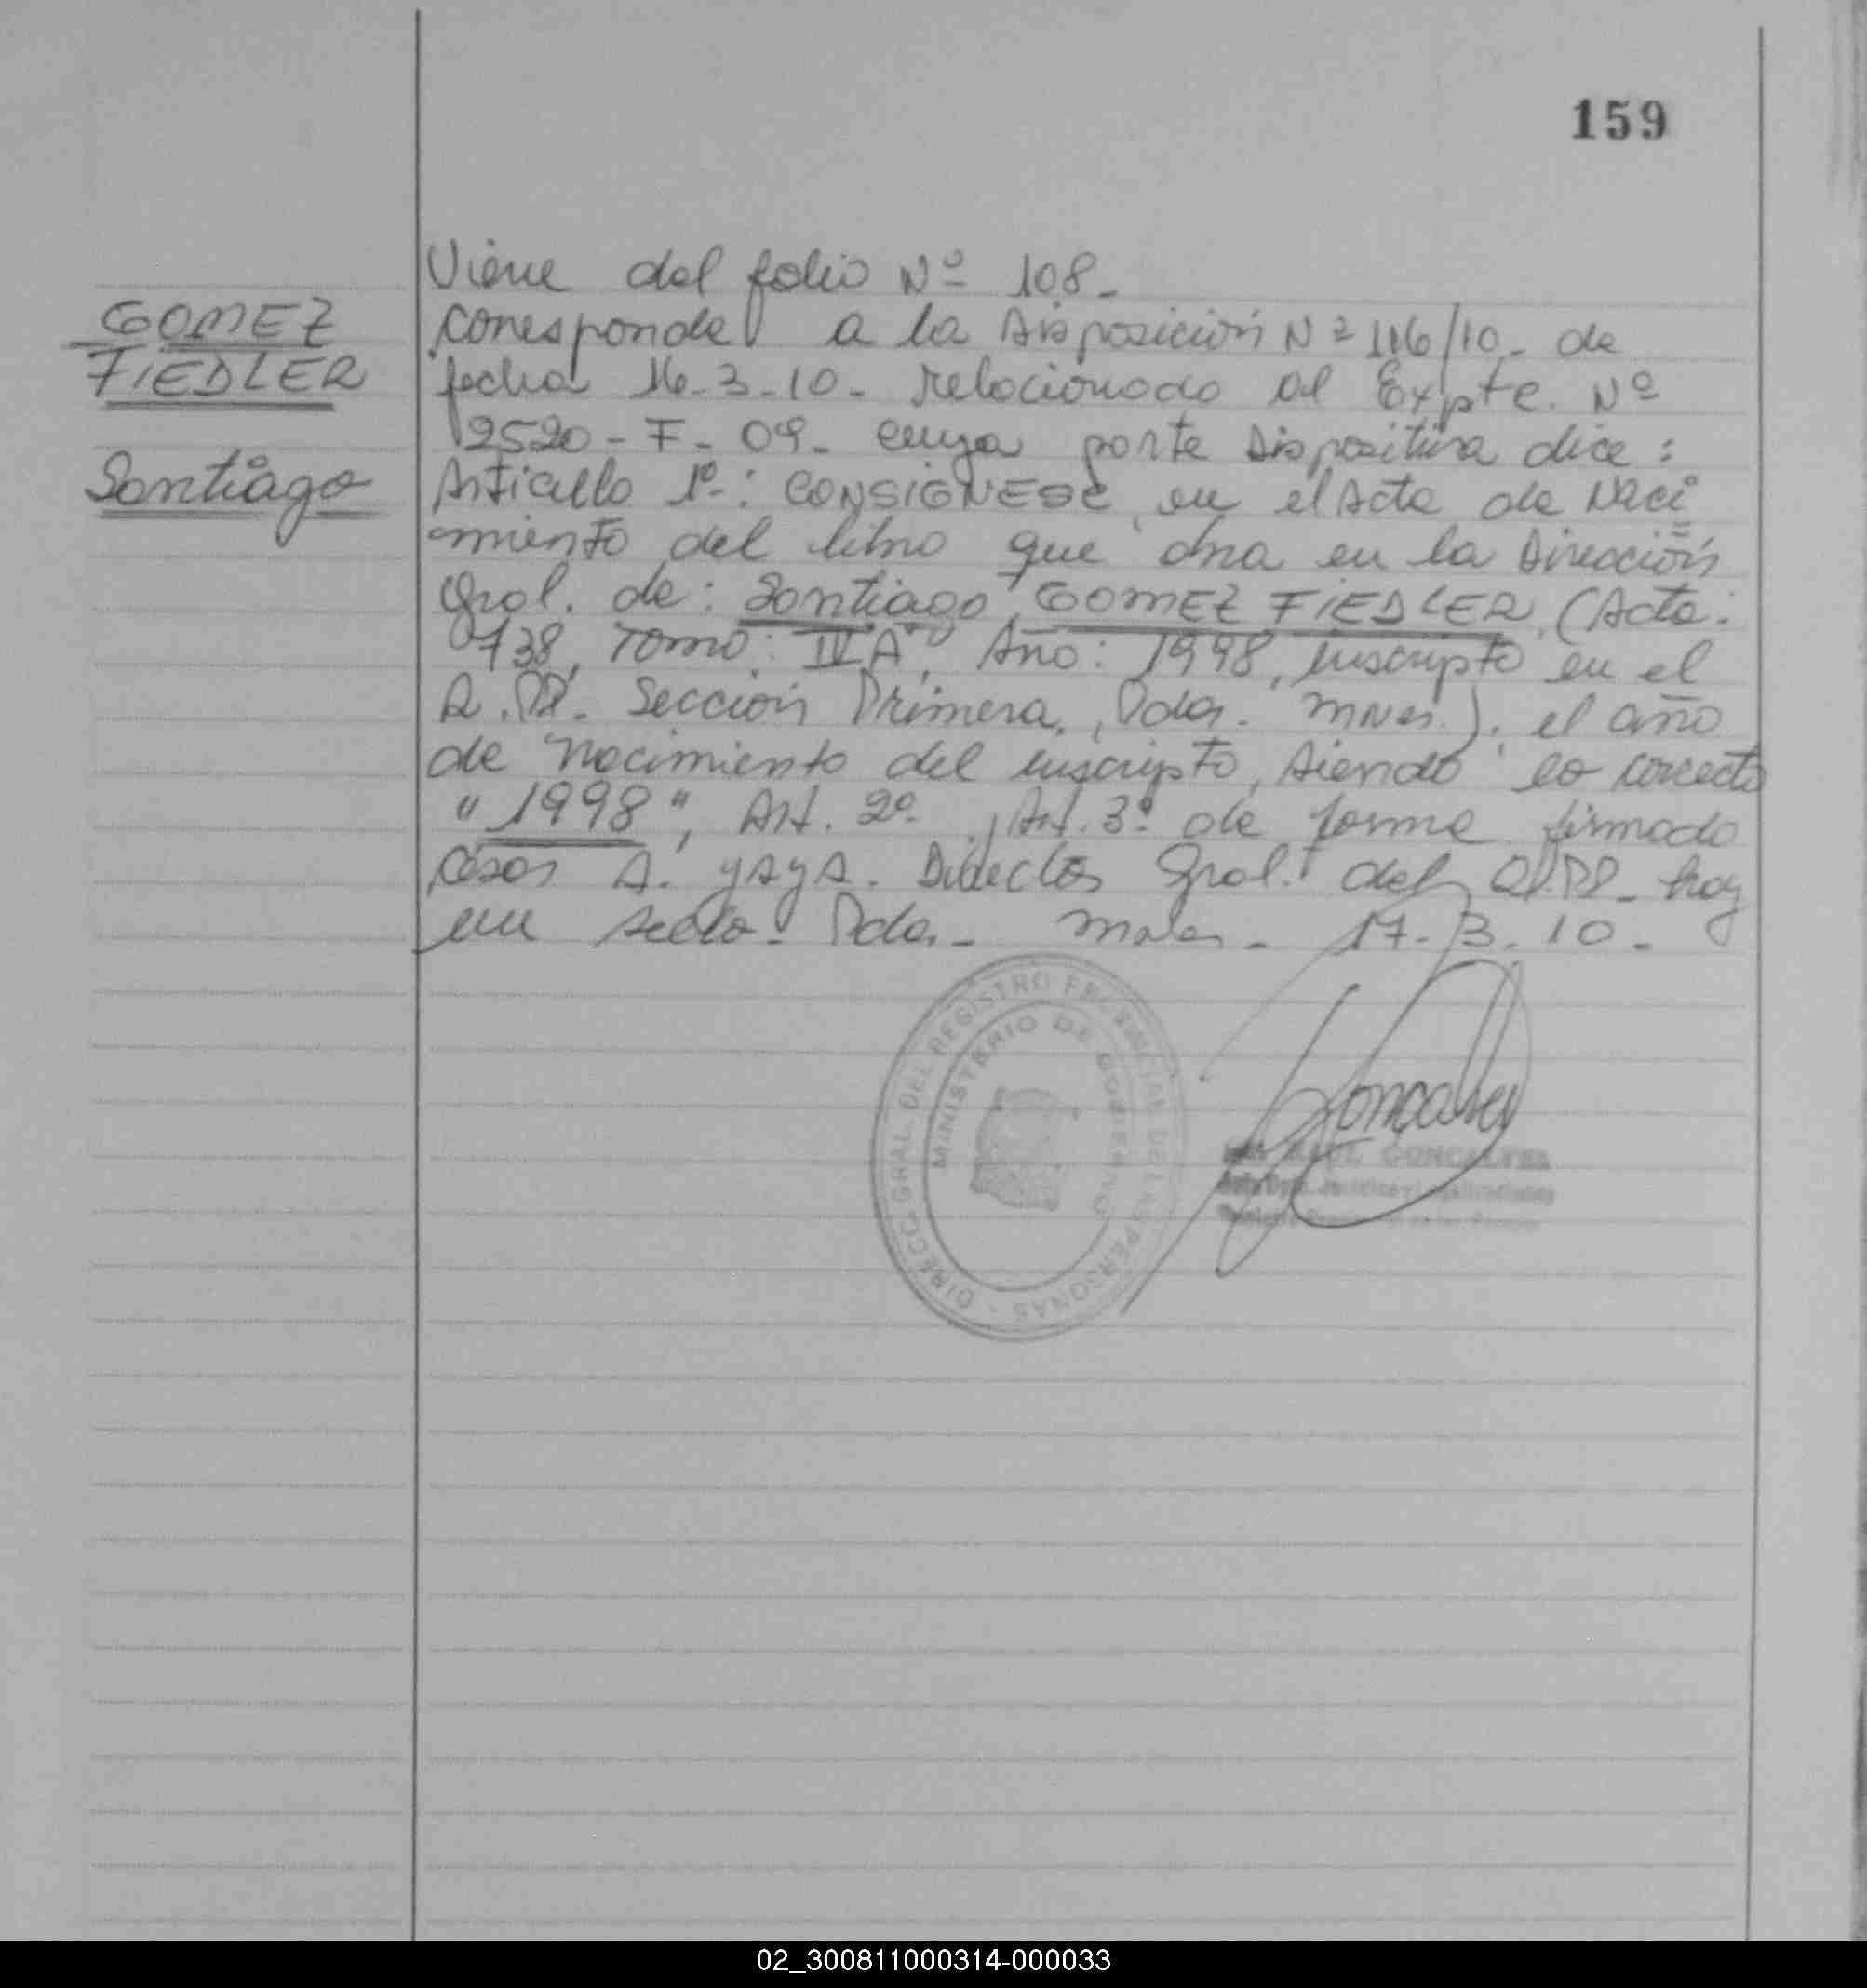 159
Viene del folio Nº 108-
GOMEZ
FIEDLER
Santiago
corresponde a la Disposición Nº 116/10- de
fecha 16-3-10- relacionado al Expte. Nº
2520-F-09- cuya parte Dispositiva dice:
Articulo 1º-: CONSIGNESE, en el Acta de Naci
miento del libro que obra en la Dirección
Gral. de: Santiago GOMEZ FIEDLER, (Acta:
738, Tomo: IV A, Año: 1998, inscripto en el
R.PP. Sección Primera, Pdas. Mnes.). el año
de nacimiento del inscripto, siendo lo correcto
"1998", Art. 2º, Art. 3º de forma firmado
Cesar A. YAYA. Director Gral. del R.PP- hoy
en Pdas- Mnes- 17-3-10-
DIRECC. GRAL. DEL REGISTRO PROVINCIAL DE LAS PERSONAS -
MINISTERIO DE GOBIERNO
Goncalves
RAUL GONCALVES
02_300811000314-000033